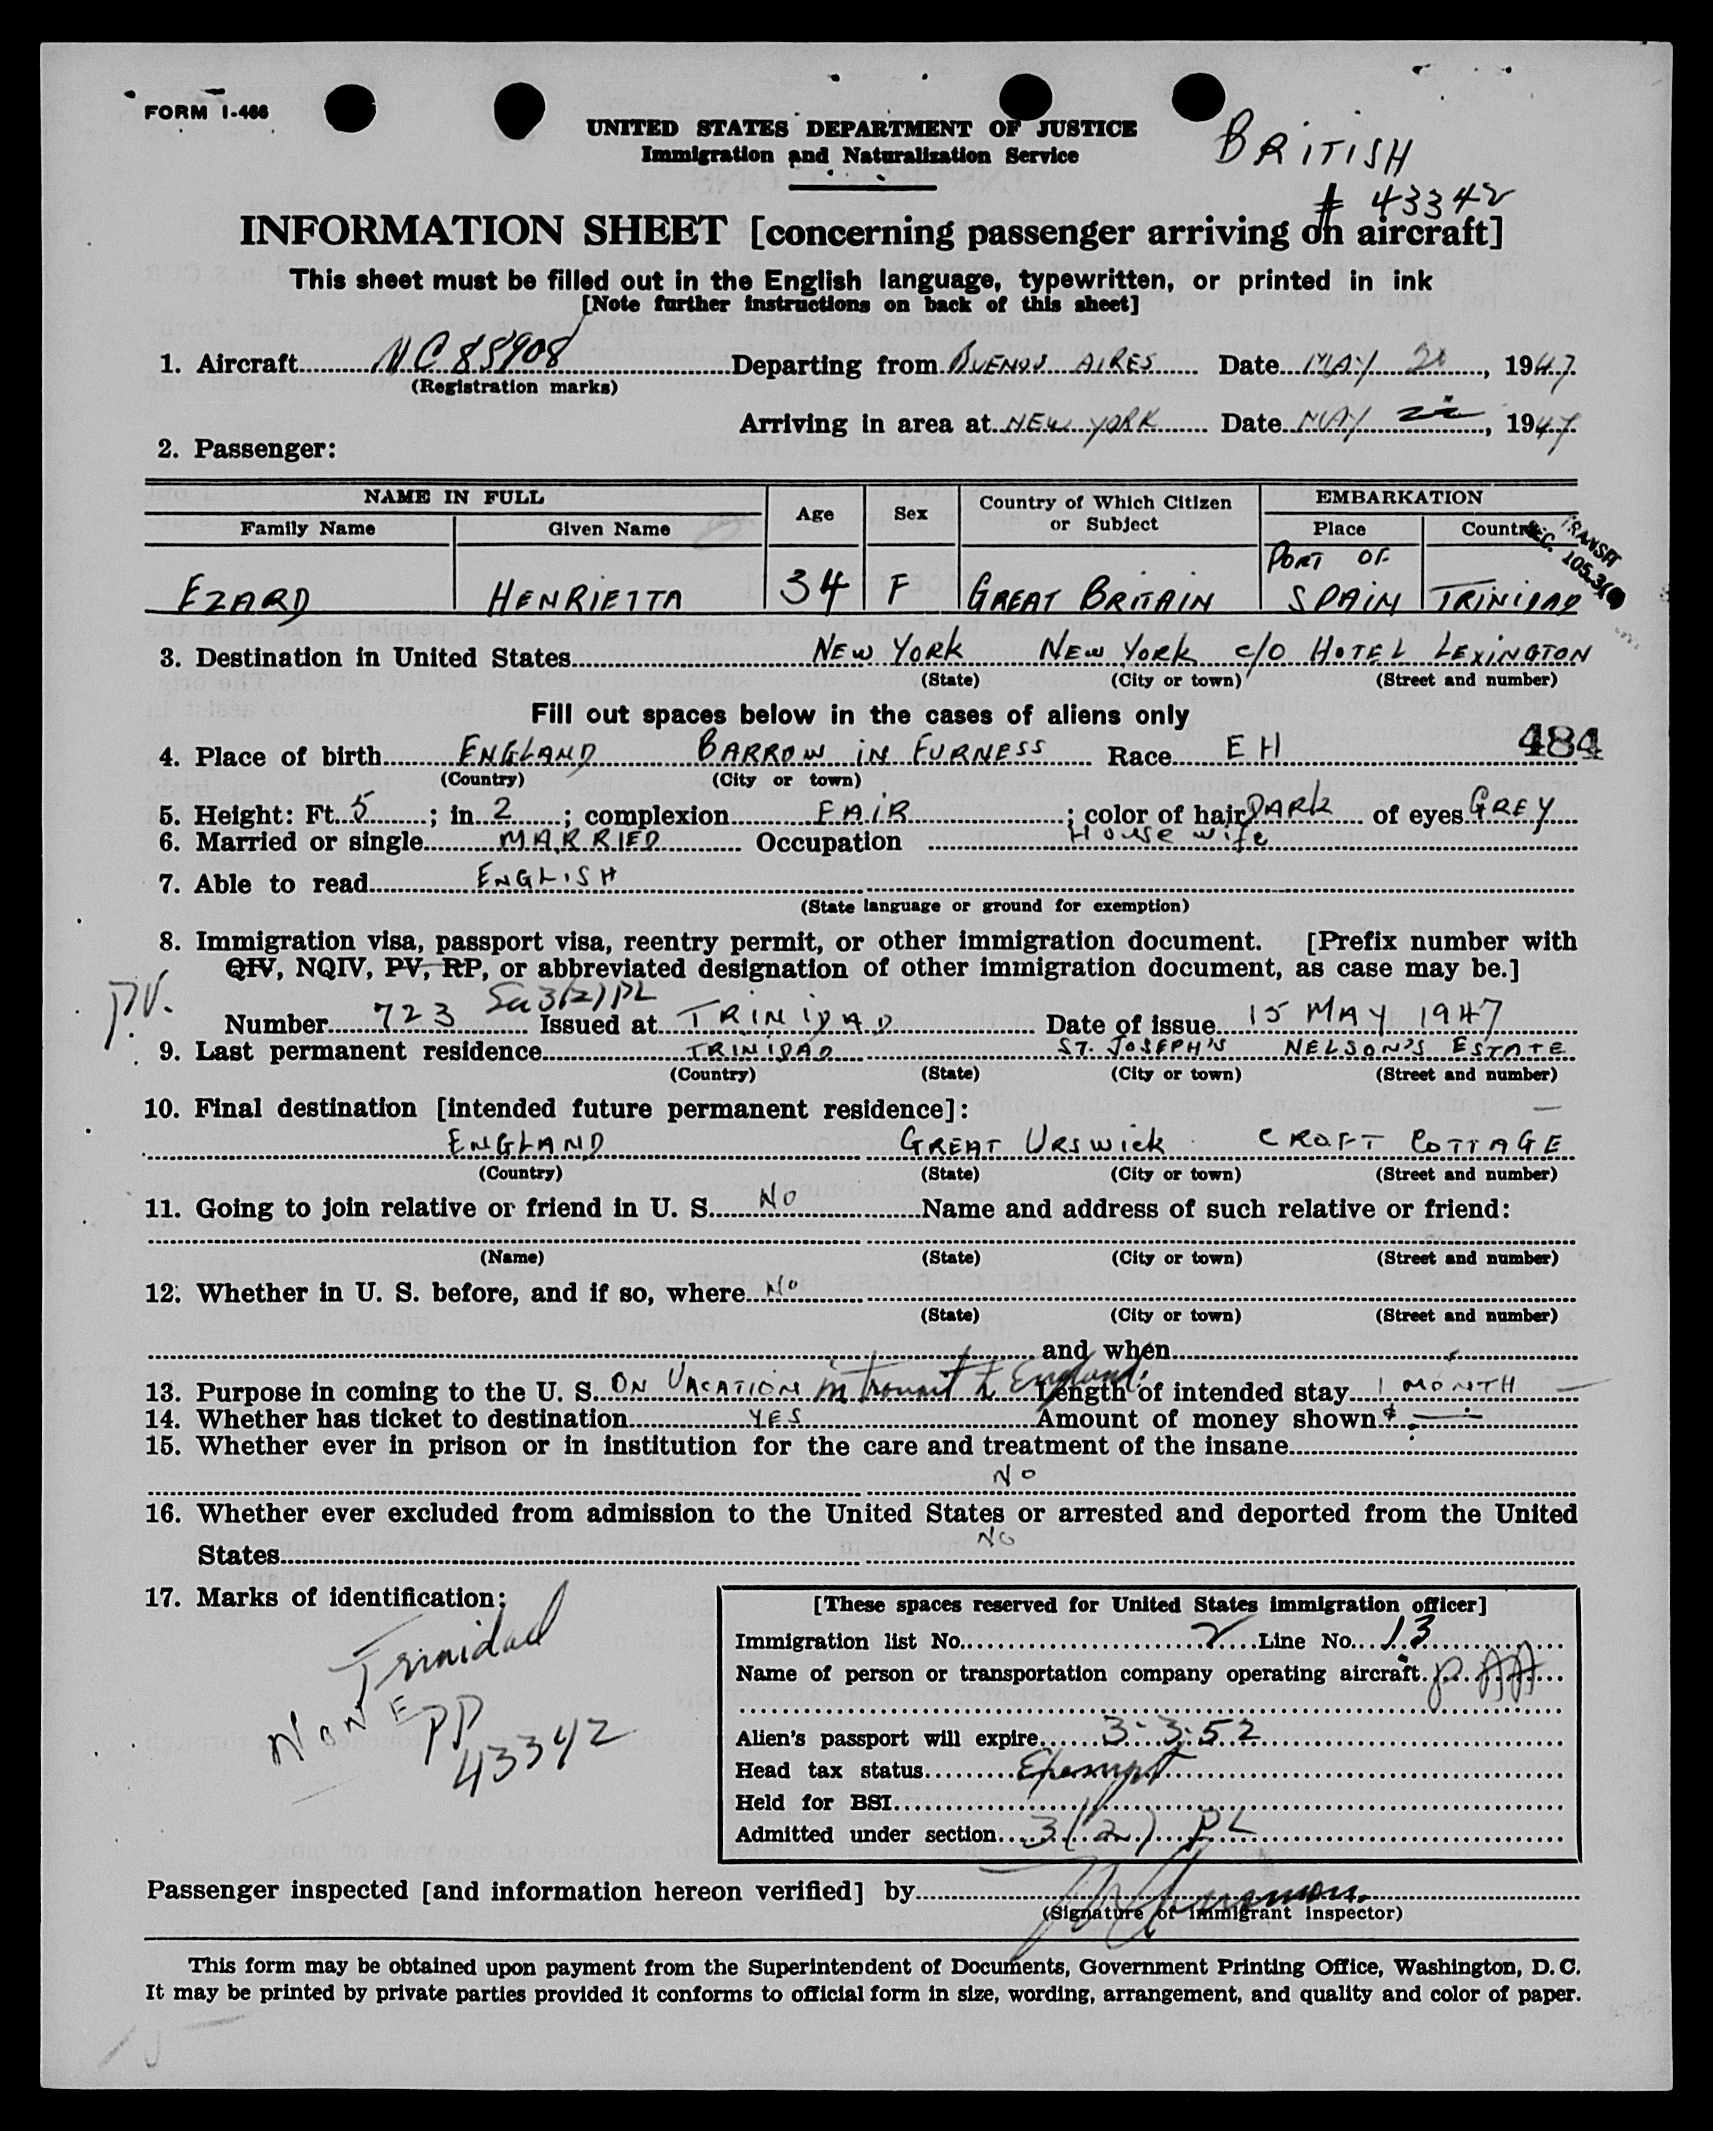 FORM I-466
UNITED STATES DEPARTMENT OF JUSTICE
Immigration and Naturalization Service
BRITISH
# 43342
INFORMATION SHEET [concerning passenger arriving on aircraft]
This sheet must be filled out in the English language, typewritten, or printed in ink
[Note further instructions on back of this sheet]
1. Aircraft NC 85908 Departing from BUENOS AIRES Date MAY 20, 1947
(Registration marks)
Arriving in area at NEW YORK Date MAY 22, 1947
2. Passenger:
NAME IN FULL Age Sex Country of Which Citizen or Subject EMBARKATION
Family Name Given Name Place Country
TRANSIT
SEC. 105.3(
EZARD HENRIETTA 34 F GREAT BRITAIN PORT OF SPAIN TRINIDAD
3. Destination in United States NEW YORK NEW YORK c/o HOTEL LEXINGTON
(State) (City or town) (Street and number)
Fill out spaces below in the cases of aliens only
484
4. Place of birth ENGLAND BARROW IN FURNESS Race EH
(Country) (City or town)
5. Height: Ft. 5; in. 2; complexion FAIR; color of hair DARK of eyes GREY
6. Married or single MARRIED Occupation Housewife
7. Able to read ENGLISH
(State language or ground for exemption)
8. Immigration visa, passport visa, reentry permit, or other immigration document. [Prefix number with
QIV, NQIV, PV, RP, or abbreviated designation of other immigration document, as case may be.]
P.V.
Number 723 Sec 3(2) PL Issued at TRINIDAD Date of issue 15 MAY 1947
9. Last permanent residence TRINIDAD ST. JOSEPH'S NELSON'S ESTATE
(Country) (State) (City or town) (Street and number)
10. Final destination [intended future permanent residence]:
ENGLAND GREAT URSWICK CROFT COTTAGE
(Country) (State) (City or town) (Street and number)
11. Going to join relative or friend in U. S. No Name and address of such relative or friend:
(Name) (State) (City or town) (Street and number)
12. Whether in U. S. before, and if so, where No
(State) (City or town) (Street and number)
and when
13. Purpose in coming to the U. S. ON VACATION in transit to England Length of intended stay 1 MONTH
14. Whether has ticket to destination YES Amount of money shown $ —
15. Whether ever in prison or in institution for the care and treatment of the insane
No
16. Whether ever excluded from admission to the United States or arrested and deported from the United
States No
17. Marks of identification:
NONE
Trinidad
PP
43342
[These spaces reserved for United States immigration officer]
Immigration list No. 2 Line No. 13
Name of person or transportation company operating aircraft P.AA
Alien's passport will expire 3-3-52
Head tax status Exempt
Held for BSI
Admitted under section 3(2) PL
Passenger inspected [and information hereon verified] by
(Signature of immigrant inspector)
This form may be obtained upon payment from the Superintendent of Documents, Government Printing Office, Washington, D. C.
It may be printed by private parties provided it conforms to official form in size, wording, arrangement, and quality and color of paper.